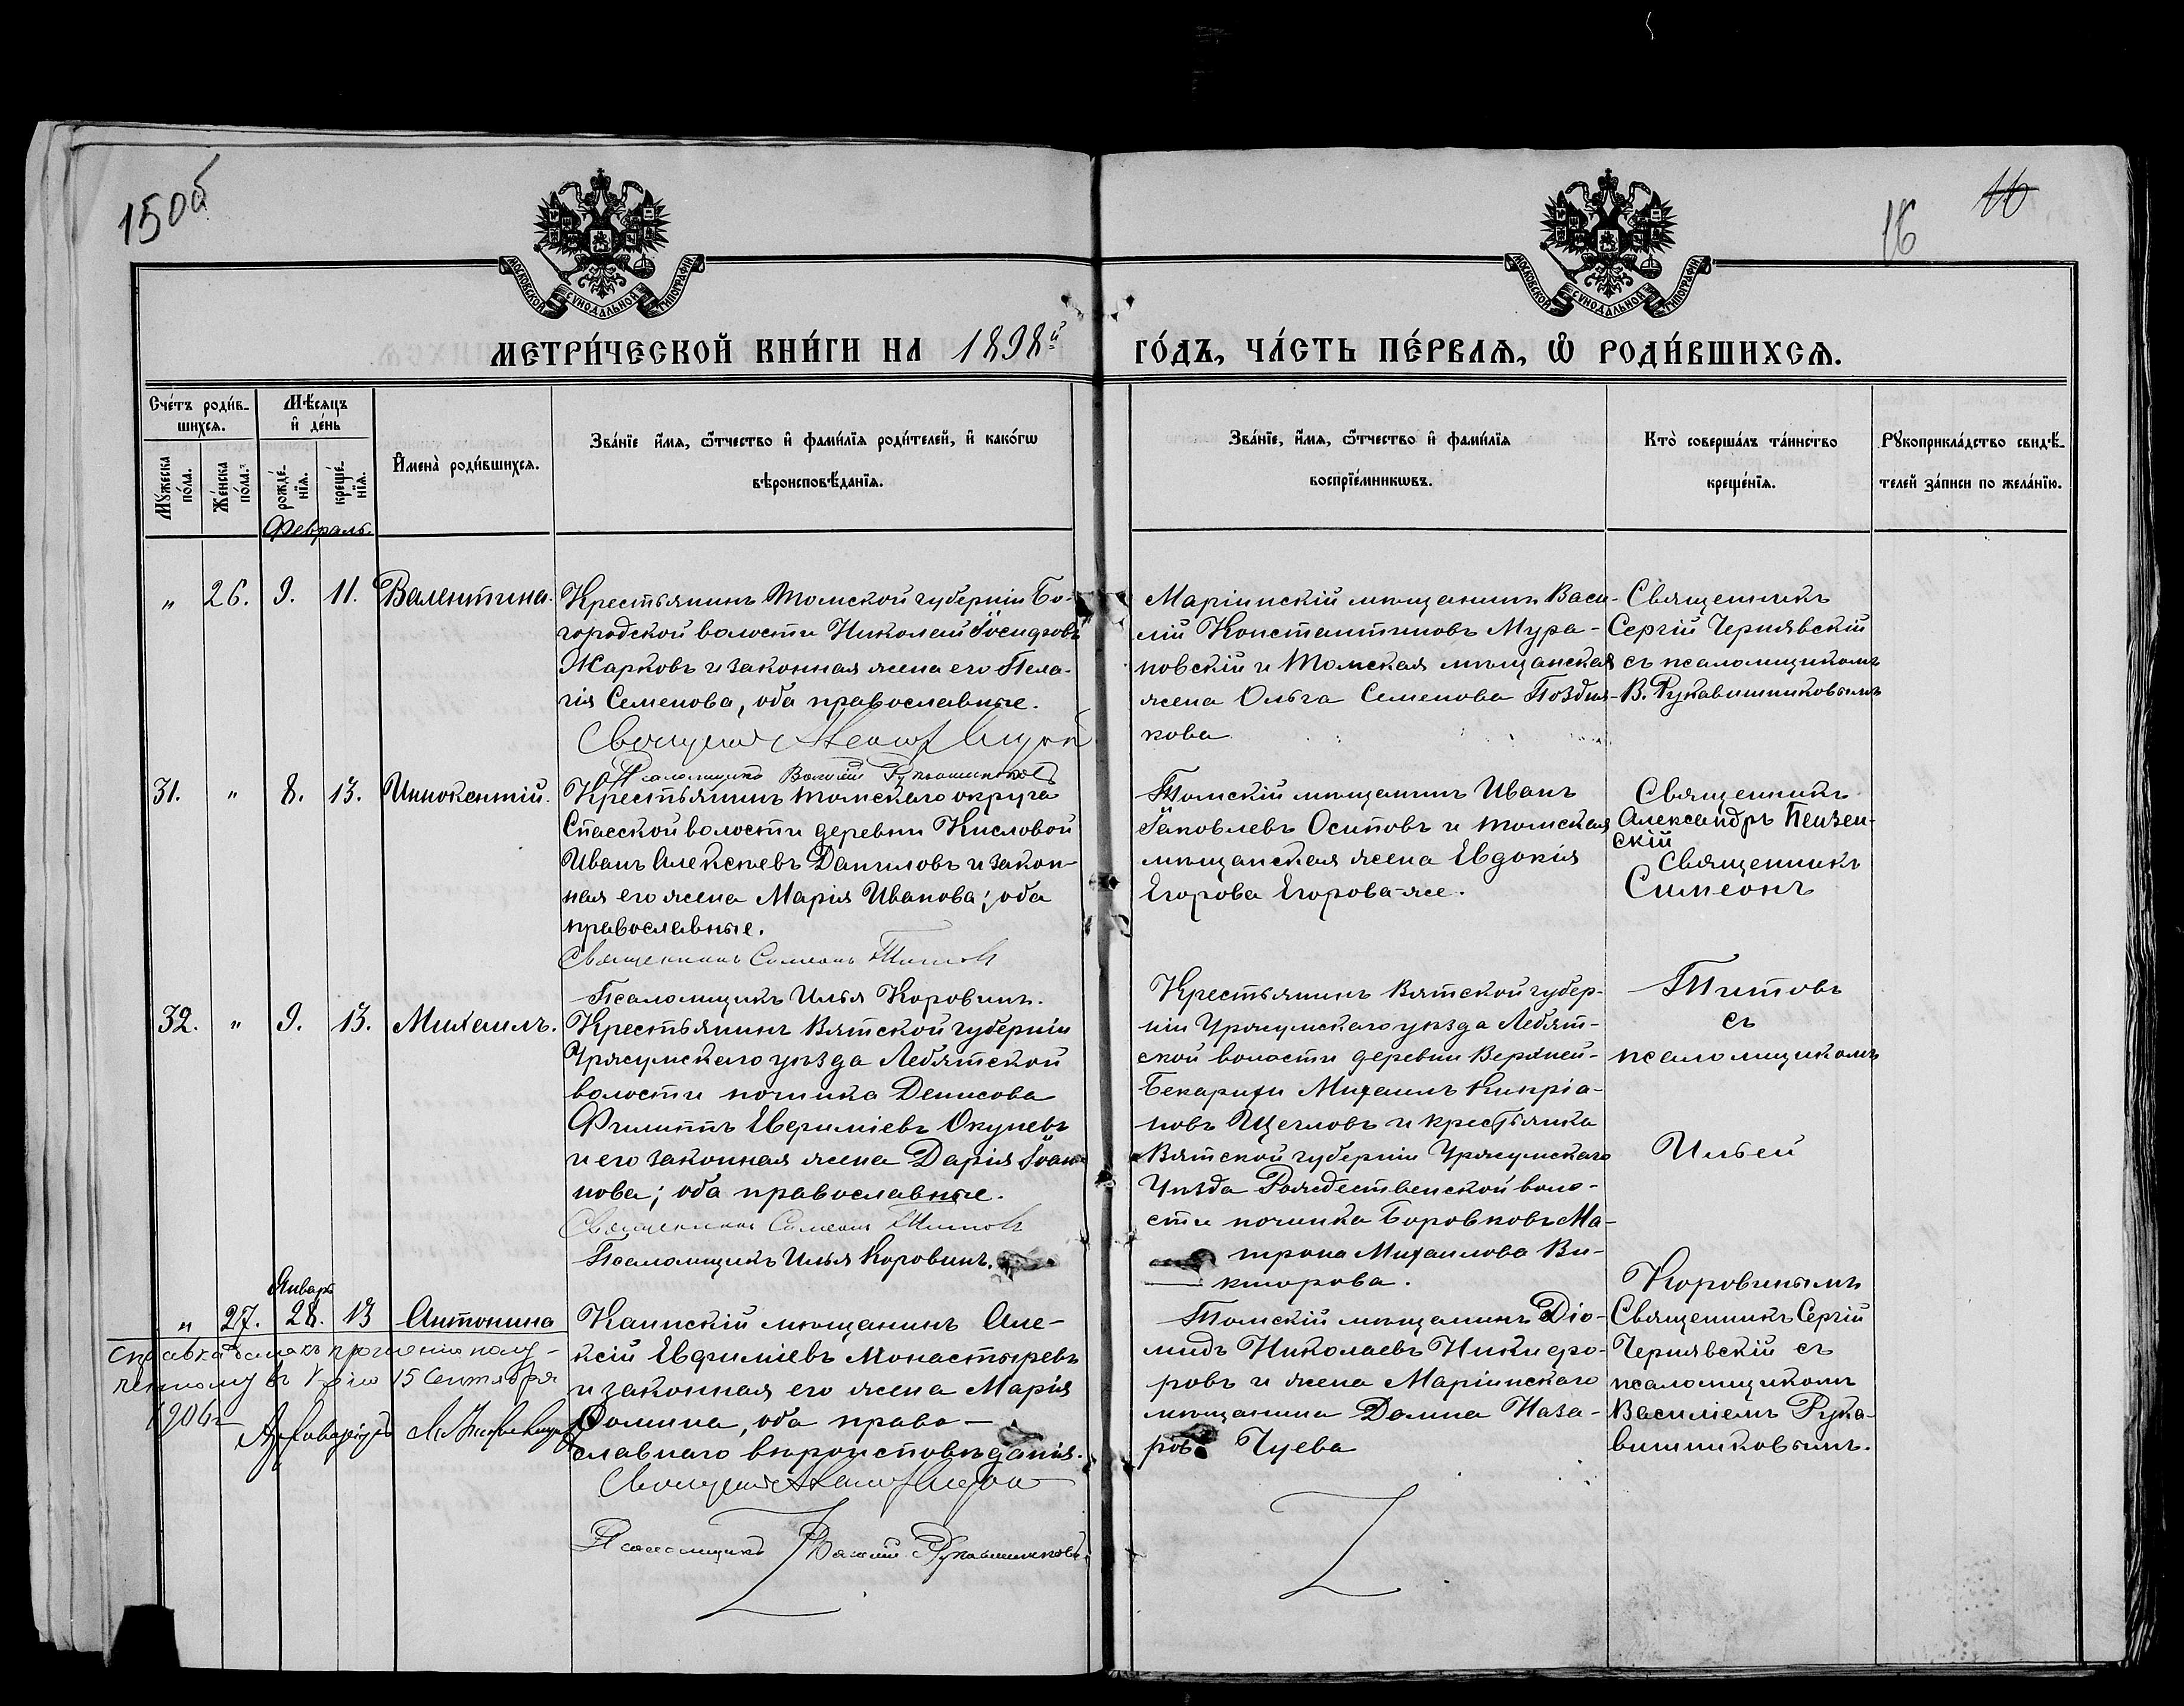 150б
16
16
МОСКОВСКОЙ СѴНОДАЛЬНОЙ ТИПОГРАФІИ
МОСКОВСКОЙ СѴНОДАЛЬНОЙ ТИПОГРАФІИ
МЕТРИ́ЧЕСКОЙ КНИ́ГИ НА 1898й ГО́ДЪ, ЧА́СТЬ ПЕ́РВАѦ, Ѽ РОДИ́ВШИХСѦ.
Сче́тъ роди́в-
шихсѧ.
Мѣ́сѧцъ
и҆ де́нь
Мꙋ́жеска
по́ла.
Же́нска
по́ла.
рожде́-
нїѧ.
креще́-
нїѧ.
И҆мена̀ роди́вшихсѧ.
Зва́нїе и҆́мѧ, ѻ҆́тчество и҆ фами́лїѧ роди́телей, и҆ како́гѡ
вѣроисповѣ́данїѧ.
Зва́нїе, и҆́мѧ, ѻ҆́тчество и҆ фами́лїѧ
воспрїе́мникѡвъ.
Кто̀ соверша́лъ та́инство
креще́нїѧ.
Рꙋкоприкла́дство свидѣ́-
телей за́писи по жела́нїю.
Февраль.
" 26. 9. 11. Валентина.
Крестьянинъ Томской губерніи Бо-
городской волости Николай Іосифовъ
Жарковъ и законная жена его Пела-
гія Семенова, оба православные.
Псаломщикъ Василій Рукавишниковъ
Маріинскій мѣщанинъ Васи-
лій Константиновъ Мура-
новскій и Томская мѣщанская
жена Ольга Семенова Поздня-
кова
Священникъ
Сергій Чернявскій
съ псаломщикомъ
В. Рукавишниковымъ
31. " 8. 13. Иннокентій.
Крестьянинъ Томскаго округа
Спасской волости деревни Кисловой
Иванъ Алексѣевъ Даниловъ и закон-
ная его жена Марія Иванова; оба
православные.
Священникъ Симеонъ Титовъ
Псаломщикъ Илья Коровинъ.
Томскій мѣщанинъ Иванъ
Іаковлевъ Осиповъ и томская
мѣщанская жена Евдокія
Егорова Егорова-же.
Священникъ
Александръ Пензен-
скій
Священникъ
Симеонъ
Титовъ
съ
псаломщикомъ
Ильей
Коровинымъ
32. " 9. 13. Михаилъ.
Крестьянинъ Вятской губерніи
Уржумскаго уѣзда Лебятской
волости починка Денисова
Филиппъ Евфиміевъ Окуневъ
и его законная жена Дарія Іоан-
нова; оба православные.
Священникъ Симеонъ Титовъ
Псаломщикъ Илья Коровинъ.
Крестьянинъ Вятской губер-
ніи Уржумскаго уѣзда Лебят-
ской волости деревни Верхней-
Бекарихи Михаилъ Кипріа-
новъ Щегловъ и крестьянка
Вятской губерніи Уржумскаго
Уѣзда Рождественской воло-
сти починка Боровковъ Ма-
трона Михаилова Ви-
кторова.
Январь
" 27. 28. 13 Антонина
Каинскій мѣщанинъ Але-
ксій Евфиміевъ Монастыревъ
и законная его жена Марія
Фомина, оба право-
славнаго вѣроисповѣданія.
Псаломщикъ Василій Рукавишниковъ
Томскій мѣщанинъ Діо-
мидъ Николаевъ Никифо-
ровъ и жена Маріинскаго
мѣщанина Домна Наза-
рова Чуева
Священникъ Сергій
Чернявскій съ
псаломщикомъ
Василіемъ Рука-
вишниковымъ.
справка къ прошенію полу-
ченному 15 Сентября
1906